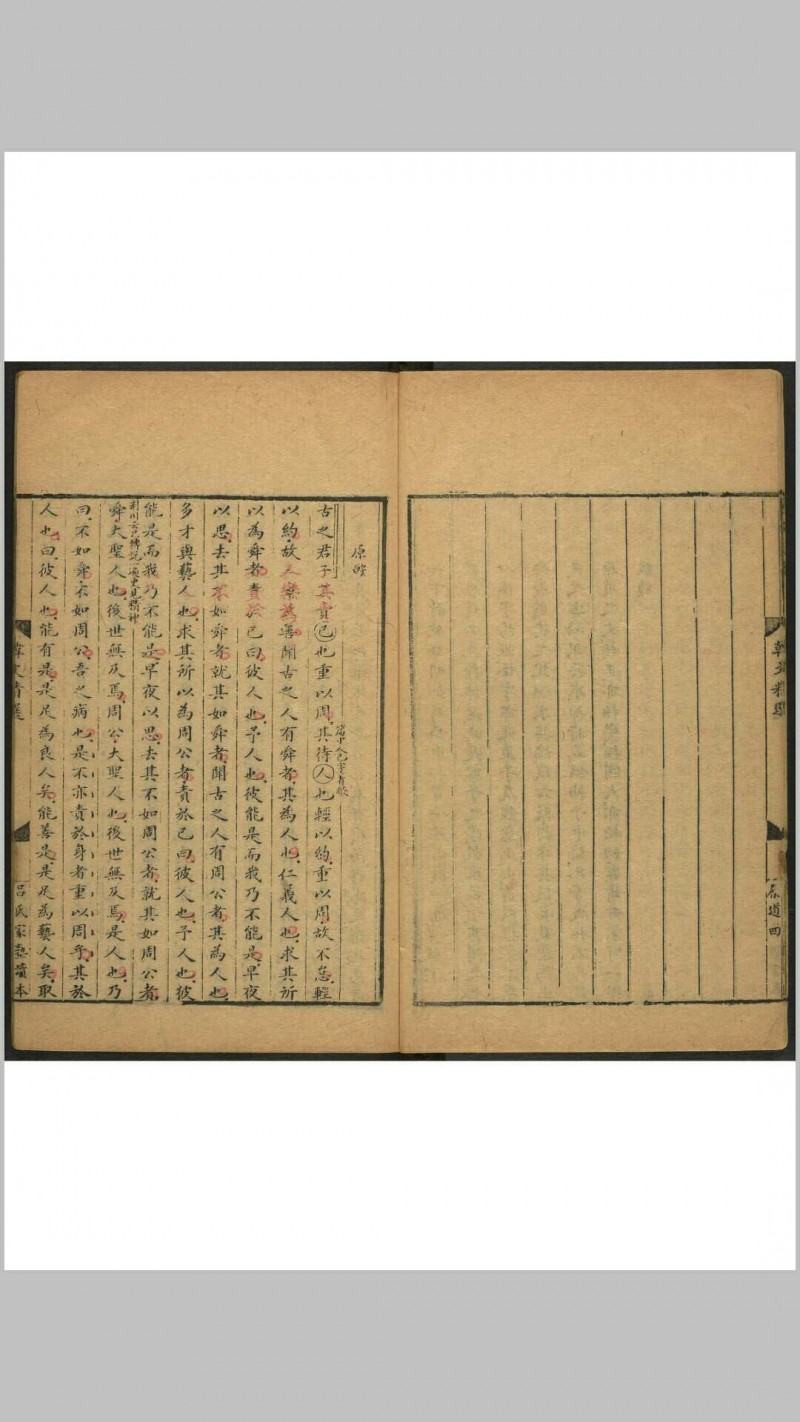 原毀
古之君子其責己也重以周其待人也輕以約重以周故不怠輕
以約故人樂為善聞古之人有舜者其為人也仁義人也求其所
以為舜者責於己曰彼人也予人也彼能是而我乃不能是早夜
以思去其不如舜者就其如舜者聞古之人有周公者其為人也
多才與藝人也求其所以為周公者責於己曰彼人也予人也彼
能是而我乃不能是早夜以思去其不如周公者就其如周公者
舜大聖人也後世無及焉周公大聖人也後世無及焉是人也乃
曰不如舜不如周公吾之病也是不亦責於身者重以周乎其於
人也曰彼人也能有是是足為良人矣能善是是足為藝人矣取
呂氏家塾讀本